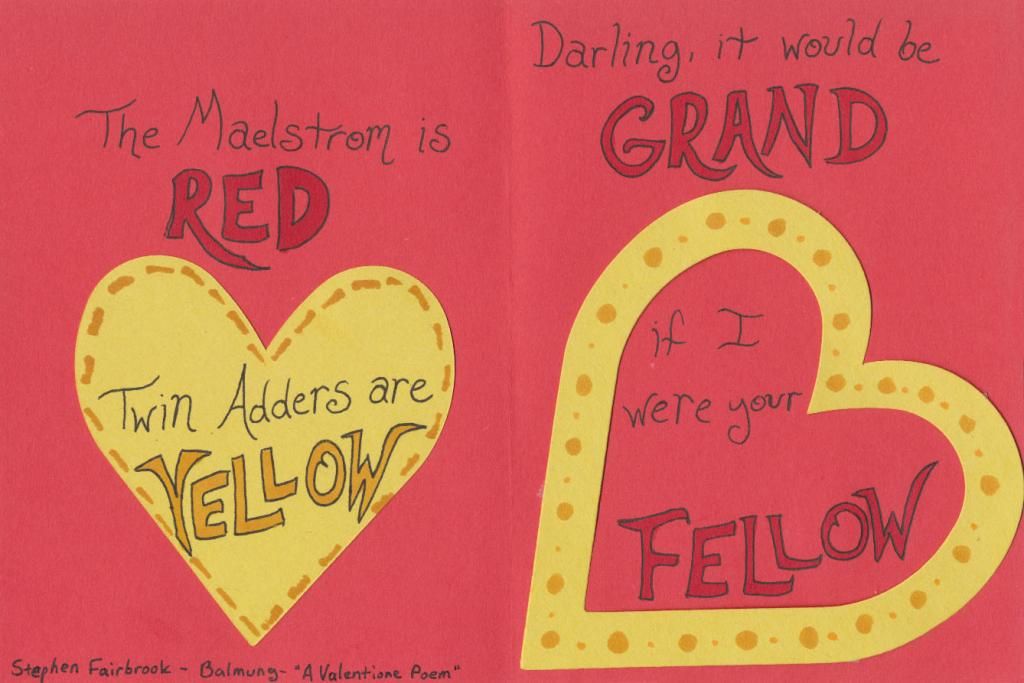 The Maelstrom is
RED
Twin Adders are
YELLOW
Stephen Fairbrook - Balmung - "A Valentione Poem"
Darling, it would be
GRAND
if I
were your
FELLOW